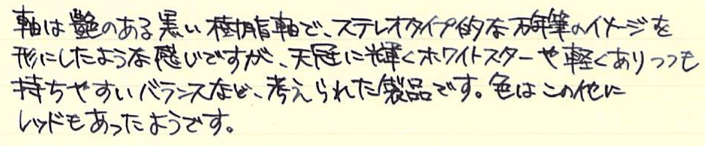 軸は艶のある黒い樹脂軸で、ステレオタイプ的な万年筆のイメージを
形にしたような感じですが、天冠に輝くホワイトスターや軽くありつつも
持ちやすいバランスなど、考えられた製品です。色はこの他に
レッドもあったようです。